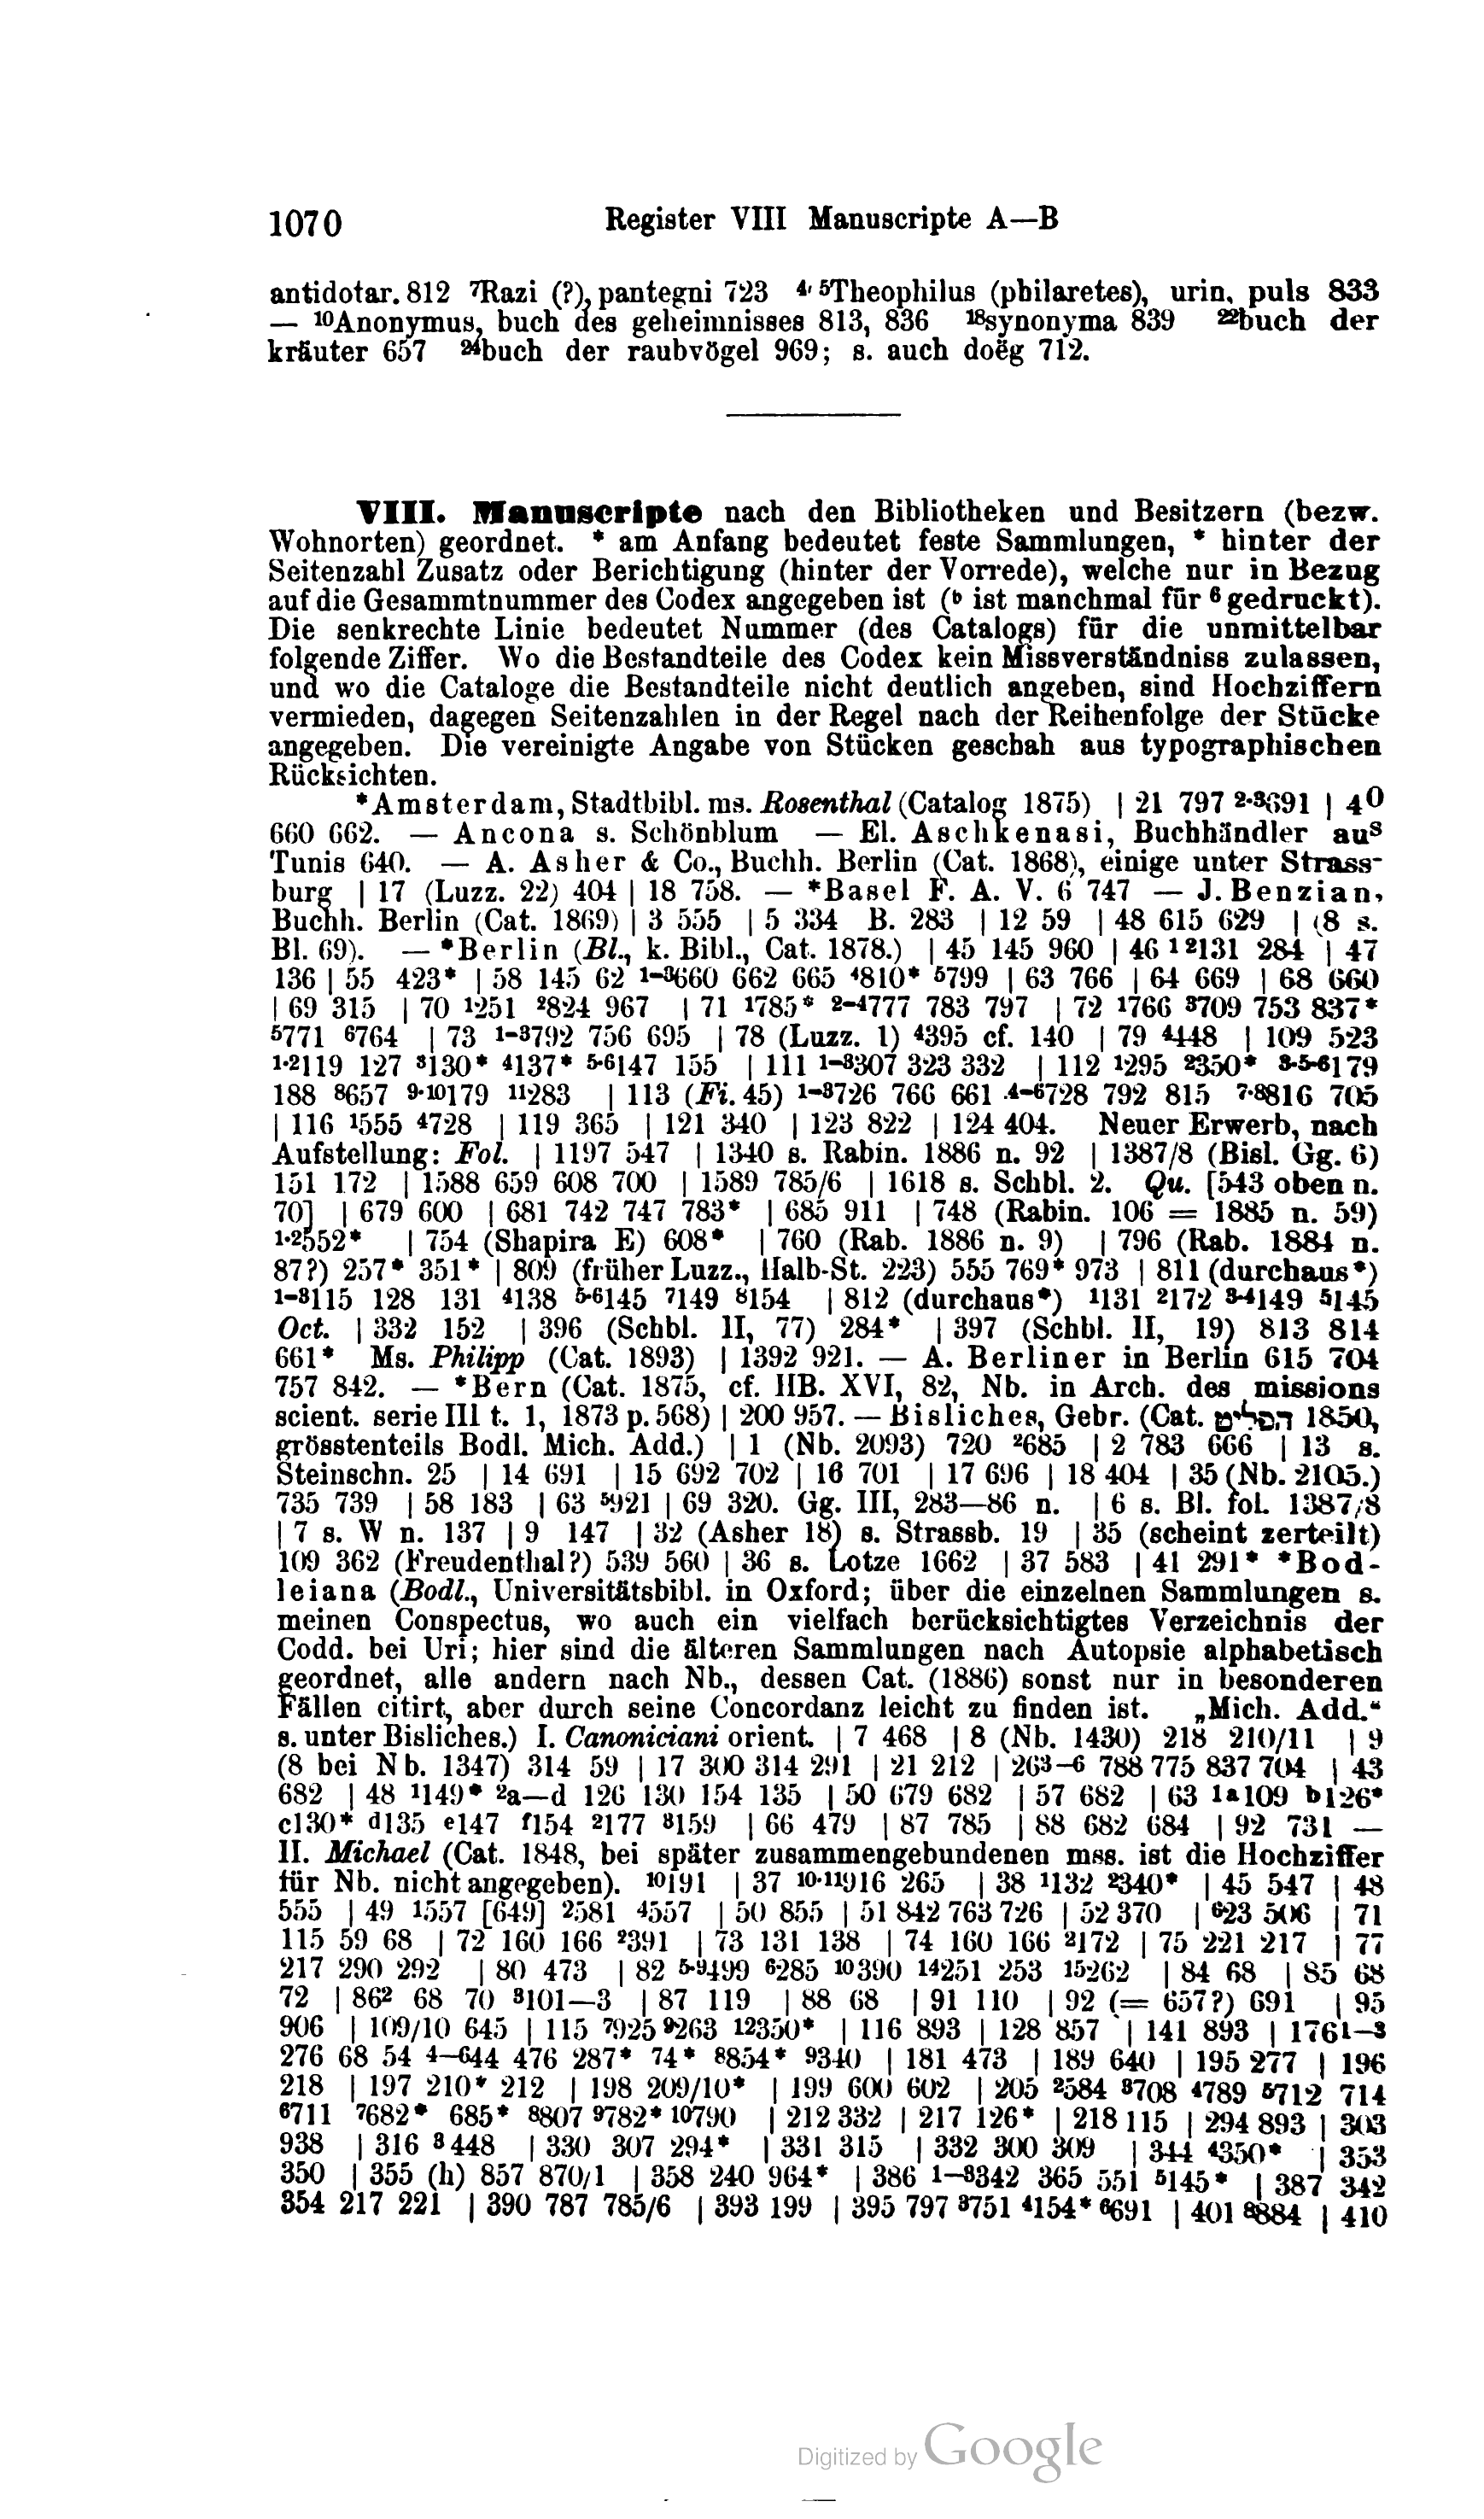 1070 Register VIII Manuscripte A—B
antidotar. 812 ⁷Razi (?), pantegni 723 ⁴′ ⁵Theophilus (philaretes), urin, puls 833
— ¹⁰Anonymus, buch des geheimnisses 813, 836 ¹⁸synonyma 839 ²²buch der
kräuter 657 ²⁴buch der raubvögel 969; s. auch doëg 712.
VIII. Manuscripte nach den Bibliotheken und Besitzern (bezw.
Wohnorten) geordnet. * am Anfang bedeutet feste Sammlungen, * hinter der
Seitenzahl Zusatz oder Berichtigung (hinter der Vorrede), welche nur in Bezug
auf die Gesammtnummer des Codex angegeben ist (ᵇ ist manchmal für ⁶ gedruckt).
Die senkrechte Linie bedeutet Nummer (des Catalogs) für die unmittelbar
folgende Ziffer. Wo die Bestandteile des Codex kein Missverständniss zulassen,
und wo die Cataloge die Bestandteile nicht deutlich angeben, sind Hochziffern
vermieden, dagegen Seitenzahlen in der Regel nach der Reihenfolge der Stücke
angegeben. Die vereinigte Angabe von Stücken geschah aus typographischen
Rücksichten.
*Amsterdam, Stadtbibl. ms. Rosenthal (Catalog 1875) | 21 797 ²·³691 | 40
660 662. — Ancona s. Schönblum — El. Aschkenasi, Buchhändler aus
Tunis 640. — A. Asher & Co., Buchh. Berlin (Cat. 1868), einige unter Strass-
burg | 17 (Luzz. 22) 404 | 18 758. — *Basel F. A. V. 6 747 — J. Benzian,
Buchh. Berlin (Cat. 1869) | 3 555 | 5 334 B. 283 | 12 59 | 48 615 629 | (8 s.
Bl. 69). — *Berlin (Bl., k. Bibl., Cat. 1878.) | 45 145 960 | 46 ¹ ²131 284 | 47
136 | 55 423* | 58 145 62 ¹⁻³660 662 665 ⁴810* ⁵799 | 63 766 | 64 669 | 68 660
| 69 315 | 70 ¹251 ²824 967 | 71 ¹785* ²⁻⁴777 783 797 | 72 ¹766 ³709 753 837*
⁵771 ⁶764 | 73 ¹⁻³792 756 695 | 78 (Luzz. 1) ⁴395 cf. 140 | 79 ⁴448 | 109 523
¹·²119 127 ³130* ⁴137* ⁵·⁶147 155 | 111 ¹⁻³307 323 332 | 112 ¹295 ²350* ³·⁵⁻⁶179
188 ⁸657 ⁹·¹⁰179 ¹¹283 | 113 (Fi. 45) ¹⁻³726 766 661 ⁴⁻⁶728 792 815 ⁷·⁸816 705
| 116 ¹555 ⁴728 | 119 365 | 121 340 | 123 822 | 124 404. Neuer Erwerb, nach
Aufstellung: Fol. | 1197 547 | 1340 s. Rabin. 1886 n. 92 | 1387/8 (Bisl. Gg. 6)
151 172 | 1588 659 608 700 | 1589 785/6 | 1618 s. Schbl. 2. Qu. [543 oben n.
70] | 679 600 | 681 742 747 783* | 685 911 | 748 (Rabin. 106 = 1885 n. 59)
¹·²552* | 754 (Shapira E) 608* | 760 (Rab. 1886 n. 9) | 796 (Rab. 1884 n.
87?) 257* 351* | 809 (früher Luzz., Halb-St. 223) 555 769* 973 | 811 (durchaus*)
¹⁻³115 128 131 ⁴138 ⁵·⁶145 ⁷149 ⁸154 | 812 (durchaus*) ¹131 ²172 ³·⁴149 ⁵145
Oct. | 332 152 | 396 (Schbl. II, 77) 284* | 397 (Schbl. II, 19) 813 814
661* Ms. Philipp (Cat. 1893) | 1392 921. — A. Berliner in Berlin 615 704
757 842. — *Bern (Cat. 1875, cf. HB. XVI, 82, Nb. in Arch. des missions
scient. serie III t. 1, 1873 p. 568) | 200 957. — Bisliches, Gebr. (Cat. הפליט 1850,
grösstenteils Bodl. Mich. Add.) | 1 (Nb. 2093) 720 ²685 | 2 783 666 | 13 s.
Steinschn. 25 | 14 691 | 15 692 702 | 16 701 | 17 696 | 18 404 | 35 (Nb. 2105.)
735 739 | 58 183 | 63 ⁵921 | 69 320. Gg. III, 283—86 n. | 6 s. Bl. fol. 1387/8
| 7 s. W n. 137 | 9 147 | 32 (Asher 18) s. Strassb. 19 | 35 (scheint zerteilt)
109 362 (Freudenthal?) 539 560 | 36 s. Lotze 1662 | 37 583 | 41 291* *Bod-
leiana (Bodl., Universitätsbibl. in Oxford; über die einzelnen Sammlungen s.
meinen Conspectus, wo auch ein vielfach berücksichtigtes Verzeichnis der
Codd. bei Uri; hier sind die älteren Sammlungen nach Autopsie alphabetisch
geordnet, alle andern nach Nb., dessen Cat. (1886) sonst nur in besonderen
Fällen citirt, aber durch seine Concordanz leicht zu finden ist. „Mich. Add.“
s. unter Bisliches.) I. Canoniciani orient. | 7 468 | 8 (Nb. 1430) 218 210/11 | 9
(8 bei Nb. 1347) 314 59 | 17 300 314 291 | 21 212 | 26³⁻⁶ 788 775 837 704 | 43
682 | 48 ¹149* ²a—d 126 130 154 135 | 50 679 682 | 57 682 | 63 ¹ᵃ109 ᵇ126*
ᶜ130* ᵈ135 ᵉ147 ᶠ154 ²177 ³159 | 66 479 | 87 785 | 88 682 684 | 92 731 —
II. Michael (Cat. 1848, bei später zusammengebundenen mss. ist die Hochziffer
für Nb. nicht angegeben). ¹⁰191 | 37 ¹⁰·¹¹916 265 | 38 ¹132 ²340* | 45 547 | 48
555 | 49 ¹557 [649] ²581 ⁴557 | 50 855 | 51 842 763 726 | 52 370 | ⁶23 506 | 71
115 59 68 | 72 160 166 ²391 | 73 131 138 | 74 160 166 ²172 | 75 221 217 | 77
217 290 292 | 80 473 | 82 ⁵·⁹499 ⁶285 ¹⁰390 ¹⁴251 253 ¹⁵262 | 84 68 | 85 68
72 | 86² 68 70 ³101—3 | 87 119 | 88 68 | 91 110 | 92 (= 657?) 691 | 95
906 | 109/10 645 | 115 ⁷925 ⁹263 ¹²350* | 116 893 | 128 857 | 141 893 | 176¹⁻³
276 68 54 ⁴⁻⁶44 476 287* 74* ⁸854* ⁹340 | 181 473 | 189 640 | 195 277 | 196
218 | 197 210* 212 | 198 209/10* | 199 600 602 | 205 ²584 ³708 ⁴789 ⁵712 714
⁶711 ⁷682* 685* ⁸807 ⁹782* ¹⁰790 | 212 332 | 217 126* | 218 115 | 294 893 | 303
938 | 316 ³448 | 330 307 294* | 331 315 | 332 300 309 | 344 ⁴350* | 353
350 | 355 (h) 857 870/1 | 358 240 964* | 386 ¹⁻³342 365 551 ⁵145* | 387 342
354 217 221 | 390 787 785/6 | 393 199 | 395 797 ³751 ⁴154* ⁶691 | 401 ⁸884 | 410
Digitized by Google